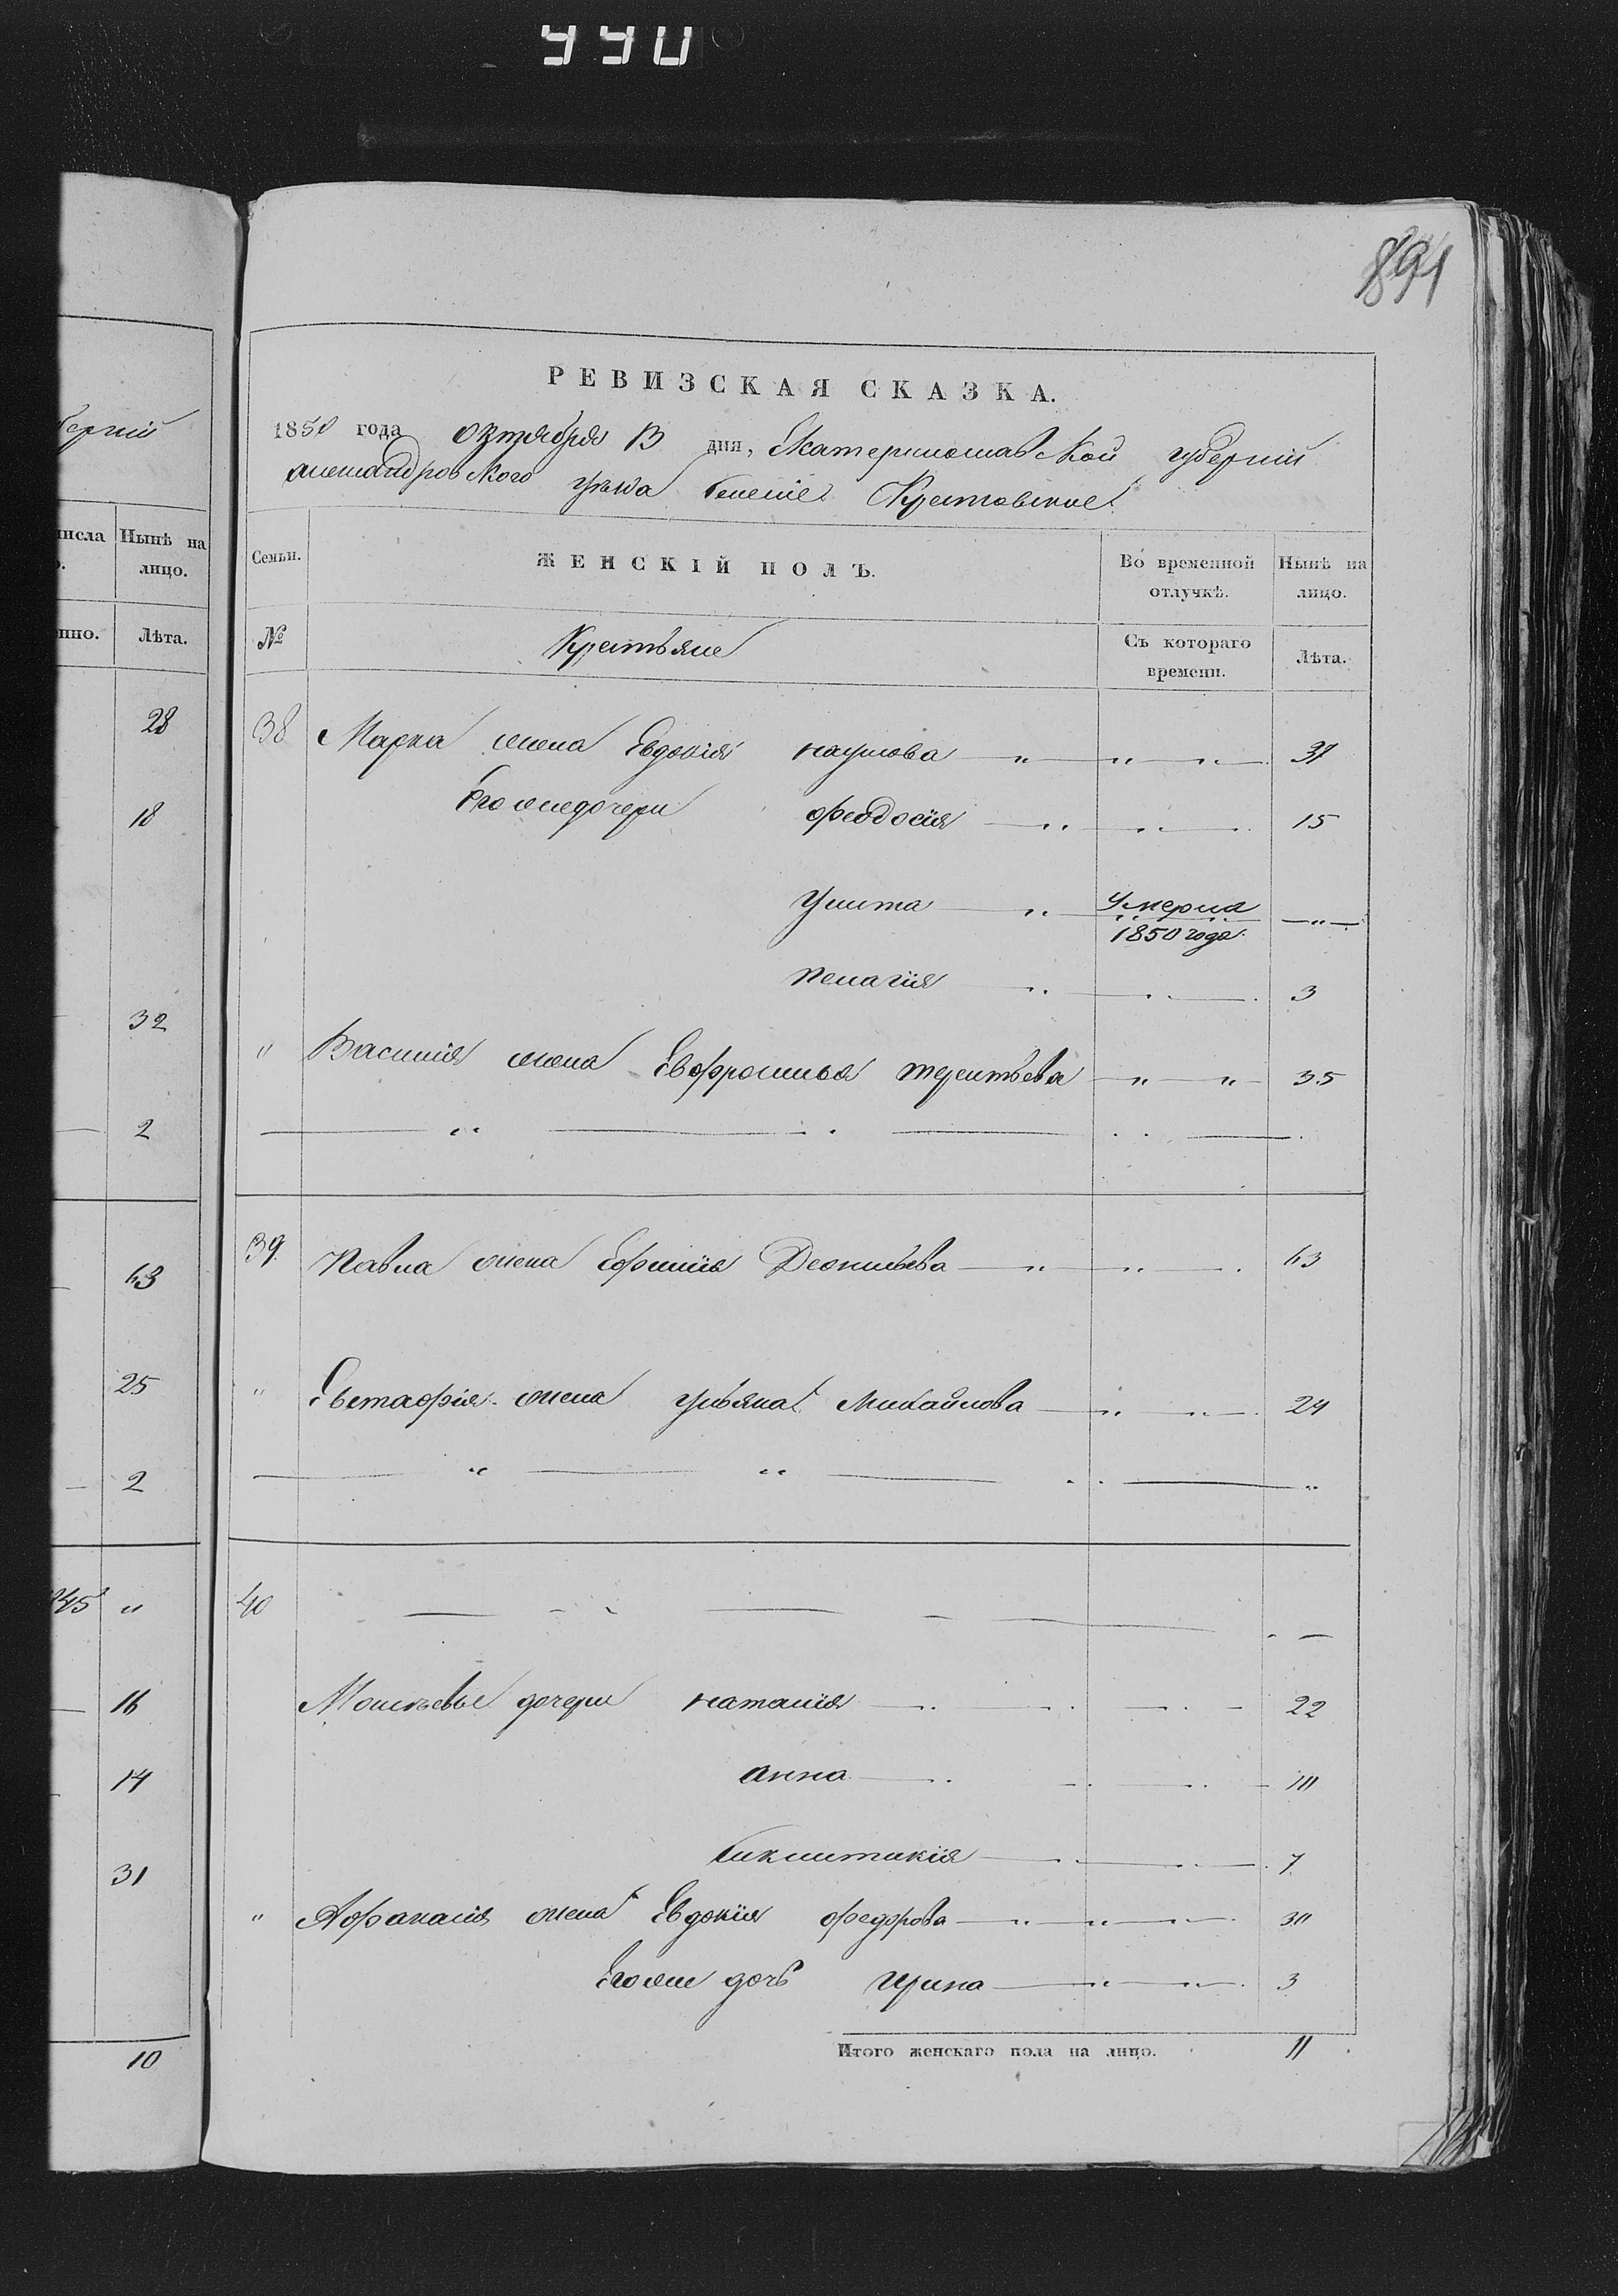 891
РЕВИЗСКАЯ СКАЗКА.
1850 года октября 13 дня, Екатеринославской губернии
александровского уезда селение
Семьи. ЖЕНСКІЙ ПОЛЪ. Во временной отлучкѣ. Нынѣ на лицо.
№ Крестьяне Съ котораго времени. Лѣта.
38 Марка жена Евдокія наумова 37
Его же дочери феодосія 15
Улита Умерла 1850 года
пелагія 3
" Василія жена Евфросинья терентьева 35
39 Павла жена Ефимія 63
" Евстафія жена ульяна Михайлова 24
40
дочери наталія 22
анна 10
7
" Афанасія жена Евдокія федорова 30
Его же дочь ирина 3
Итого женскаго пола на лицо. 11
бернии
числа Нынѣ на лицо.
Лѣта.
28
18
32
2
63
25
2
"
16
14
31
10